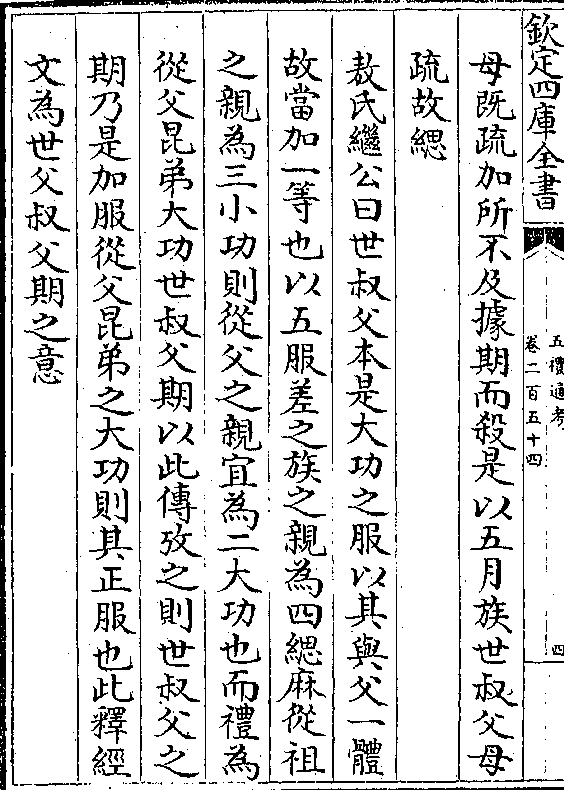 欽定四庫全書
五禮通考
卷二百五十四
四
母既疏加所不及據期而殺是以五月族世叔父母
疏故緦
敖氏繼公曰世叔父本是大功之服以其與父一體
故當加一等也以五服差之族之親為四緦麻從祖
之親為三小功則從父之親宜為二大功也而禮為
從父昆弟大功世叔父期以此傳攷之則世叔父之
期乃是加服從父昆弟之大功則其正服也此釋經
文為世父叔父期之意